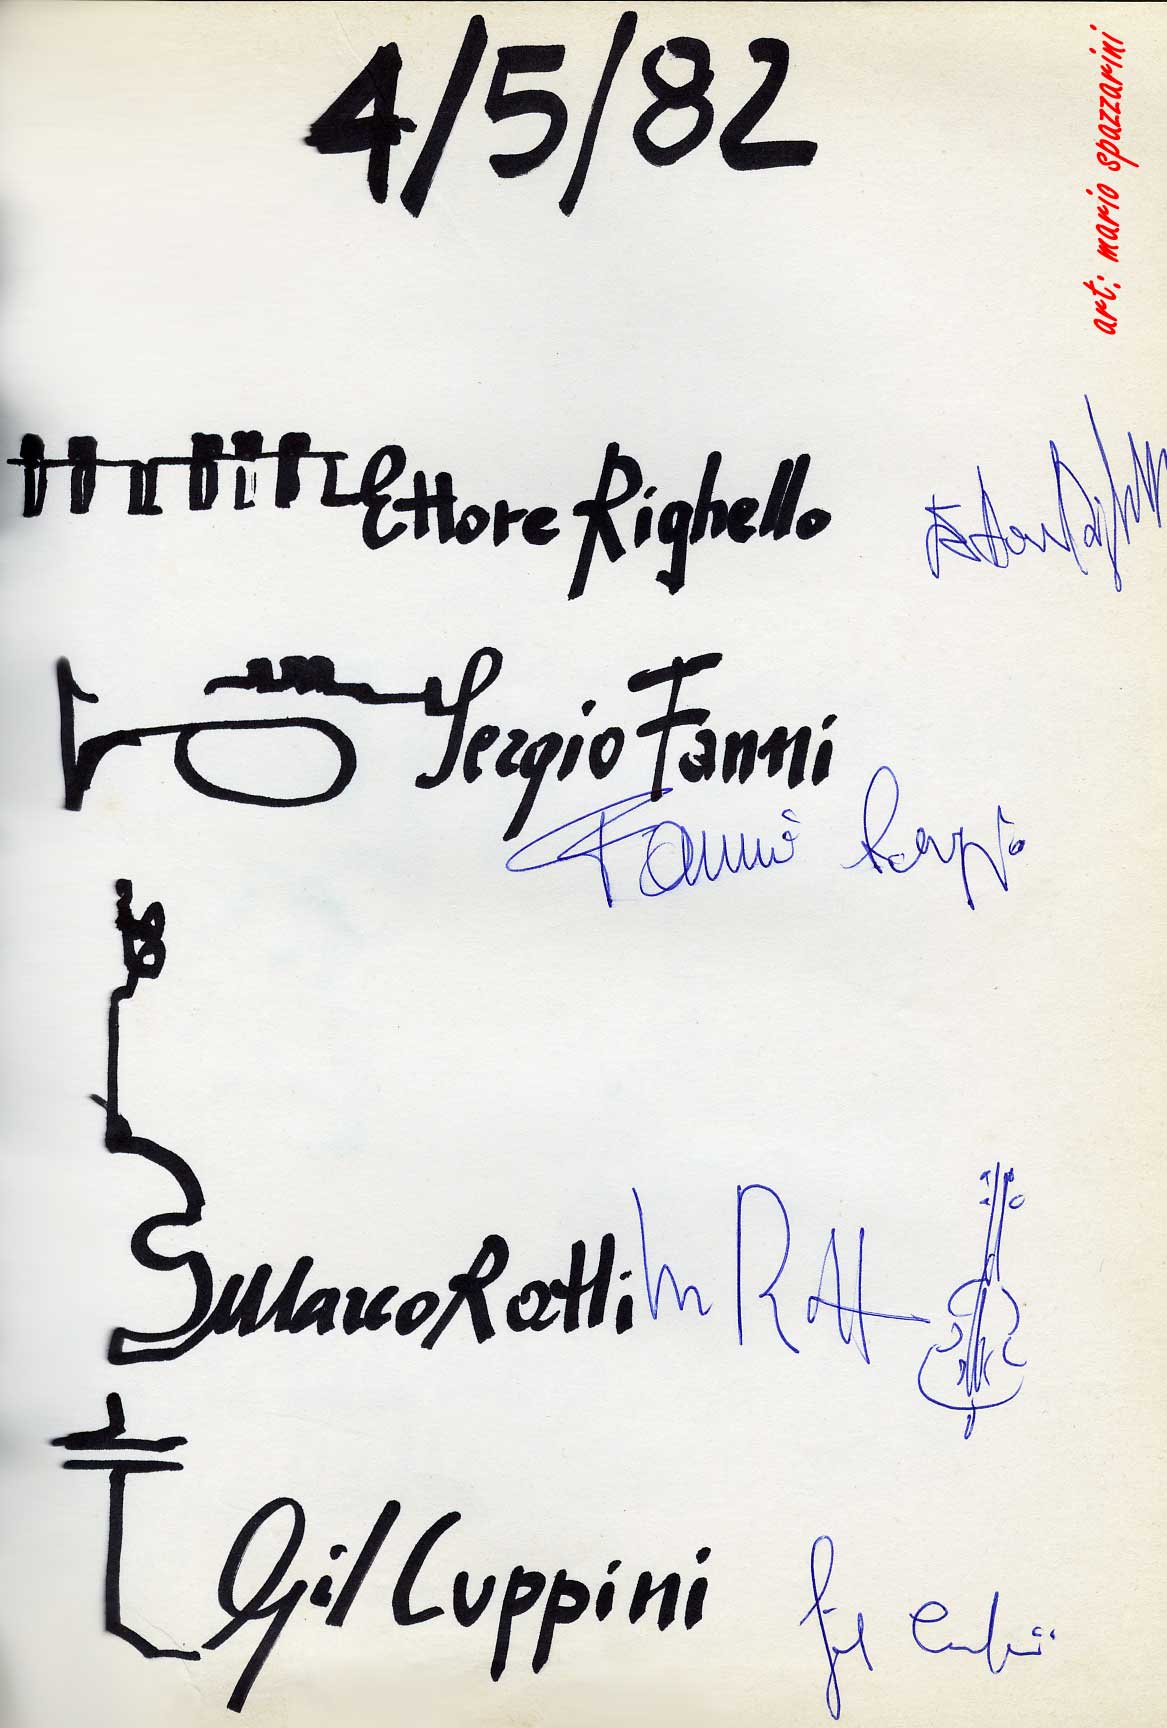 4/5/82
art: mario spazzarini
Ettore Righello
Ettore Righello
Sergio Fanni
Fanni Sergio
Marco Ratti
M Ratt
Gil Cuppini
Gil Cuppini